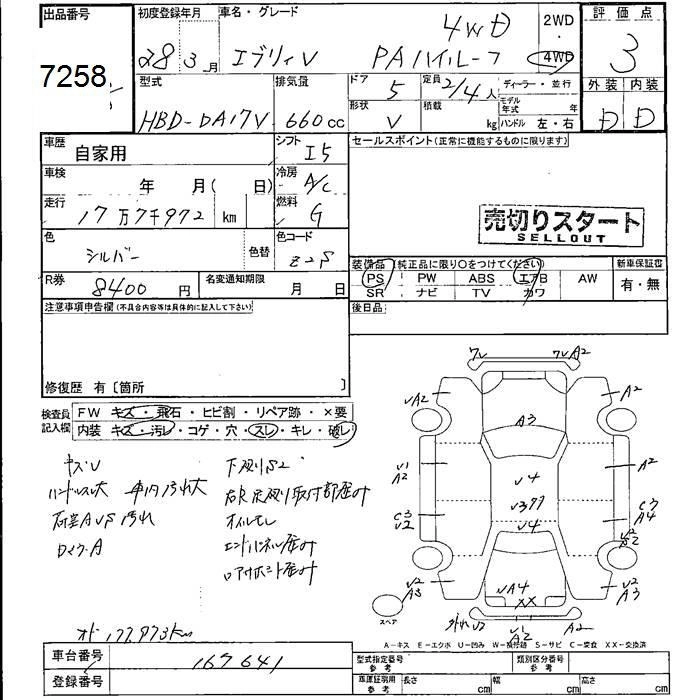 出品番号
7258
初度登録年月
28 3 月
車名・グレード
4WD
エブリィV PAハイルーフ
2WD
・
4WD
評価点
3
型式
HBD-DA17V
排気量
660 cc
ドア
5
定員
2/4 人
ディーラー・並行
形状
V
積載
kg
モデル年式 年
ハンドル 左・右
外装 内装
D D
車歴
自家用
シフト
I5
セールスポイント(正常に機能するものに限ります)
車検
年 月( 日)
冷房
A/C
走行
17万7千972 km
燃料
G
売切りスタート
SELLOUT
色
シルバー
色替
色コード
Z2S
装備品(純正品に限り○をつけてください)
新車保証書
PS PW ABS エアB AW
有・無
SR ナビ TV カワ
R券
8400 円
名変通知期限
月 日
後日品
注意事項申告欄(不具合内容等は具体的に記入して下さい)
修復歴 有〔箇所 〕
検査員記入欄
FW キズ・飛石・ヒビ割・リペア跡・×要
内装 キズ・汚レ・コゲ・穴・スレ・キレ・破レ
キズU
ハンドルスレ大 車内汚れ大
オイルモレ
7V 7VA2
VA2 A2
A3
V1
A2
A2
V4
C3
V2
V4
C3
A4
V2
A3
VA4
XX
V2
A3
スペア
V1
A2
A2
A-キズ E-エクボ U-凹み W-補修跡 S-サビ C-腐食 XX-交換済
オド 177,973km
車台番号
167641
登録番号
型式指定番号
参考
類別区分番号
参考
車庫証明用
参考
長さ cm
幅 cm
高さ cm